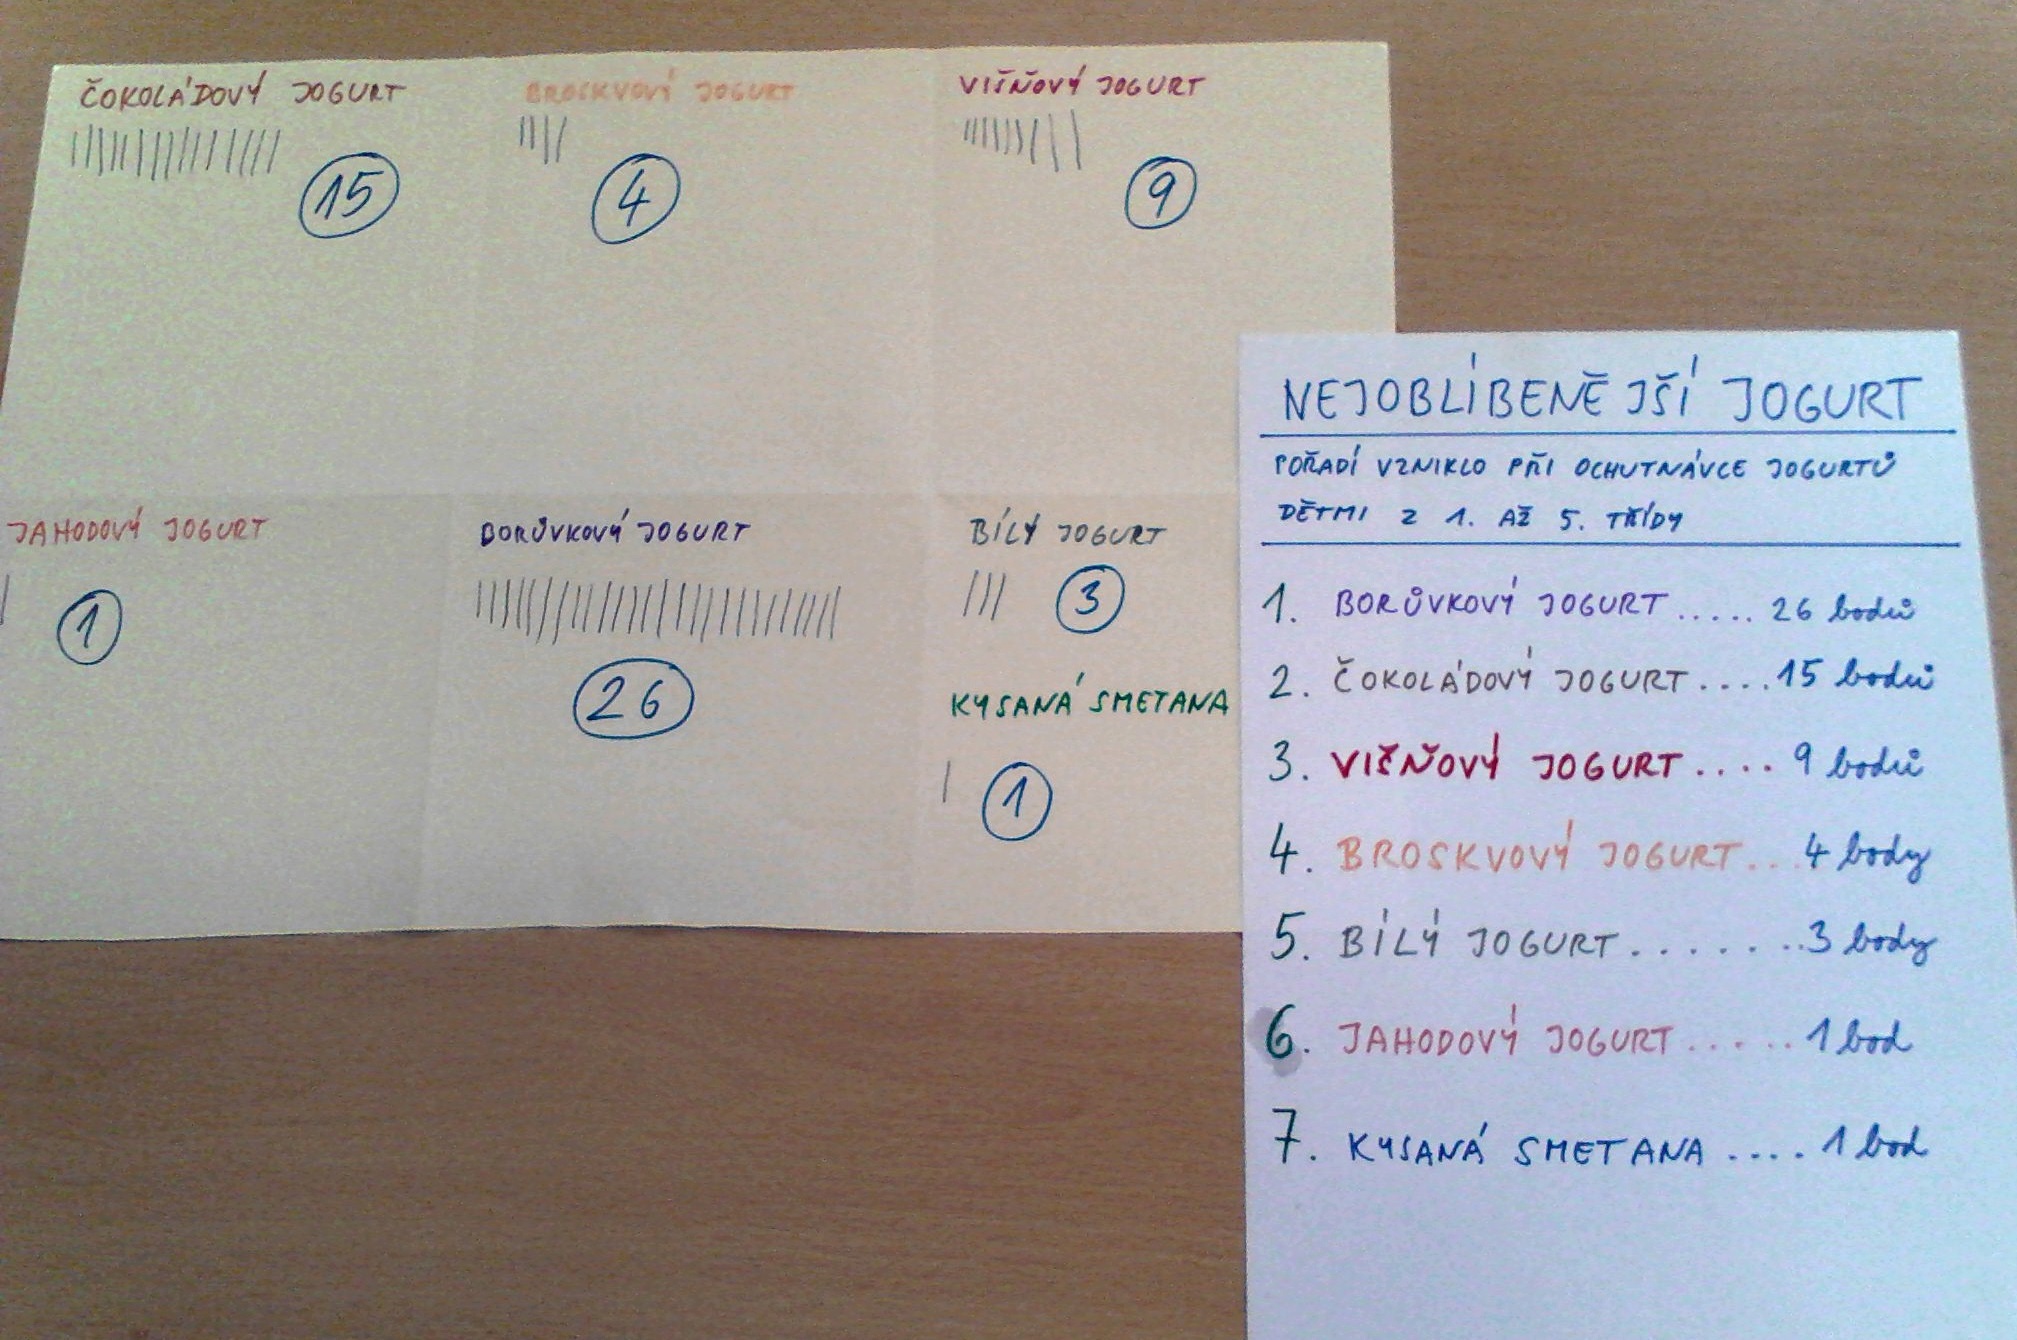 ČOKOLÁDOVÝ JOGURT
15
BROSKVOVÝ JOGURT
4
VIŠŇOVÝ JOGURT
9
JAHODOVÝ JOGURT
1
BORŮVKOVÝ JOGURT
26
BÍLÝ JOGURT
3
KYSANÁ SMETANA
1
NEJOBLÍBENĚJŠÍ JOGURT
POŘADÍ VZNIKLO PŘI OCHUTNÁVCE JOGURTŮ
DĚTMI Z 1. AŽ 5. TŘÍDY
1. BORŮVKOVÝ JOGURT..... 26 bodů
2. ČOKOLÁDOVÝ JOGURT....15 bodů
3. VIŠŇOVÝ JOGURT.... 9 bodů
4. BROSKVOVÝ JOGURT...4 body
5. BÍLÝ JOGURT........3 body
6. JAHODOVÝ JOGURT.....1 bod
7. KYSANÁ SMETANA....1 bod